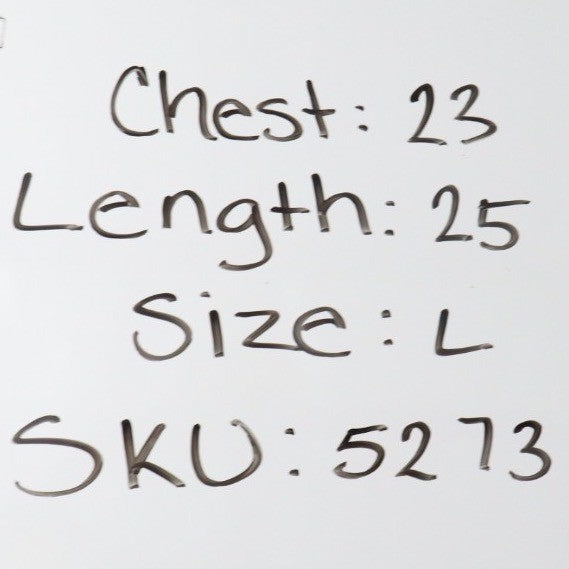 Chest: 23
Length: 25
Size: L
SKU: 5273